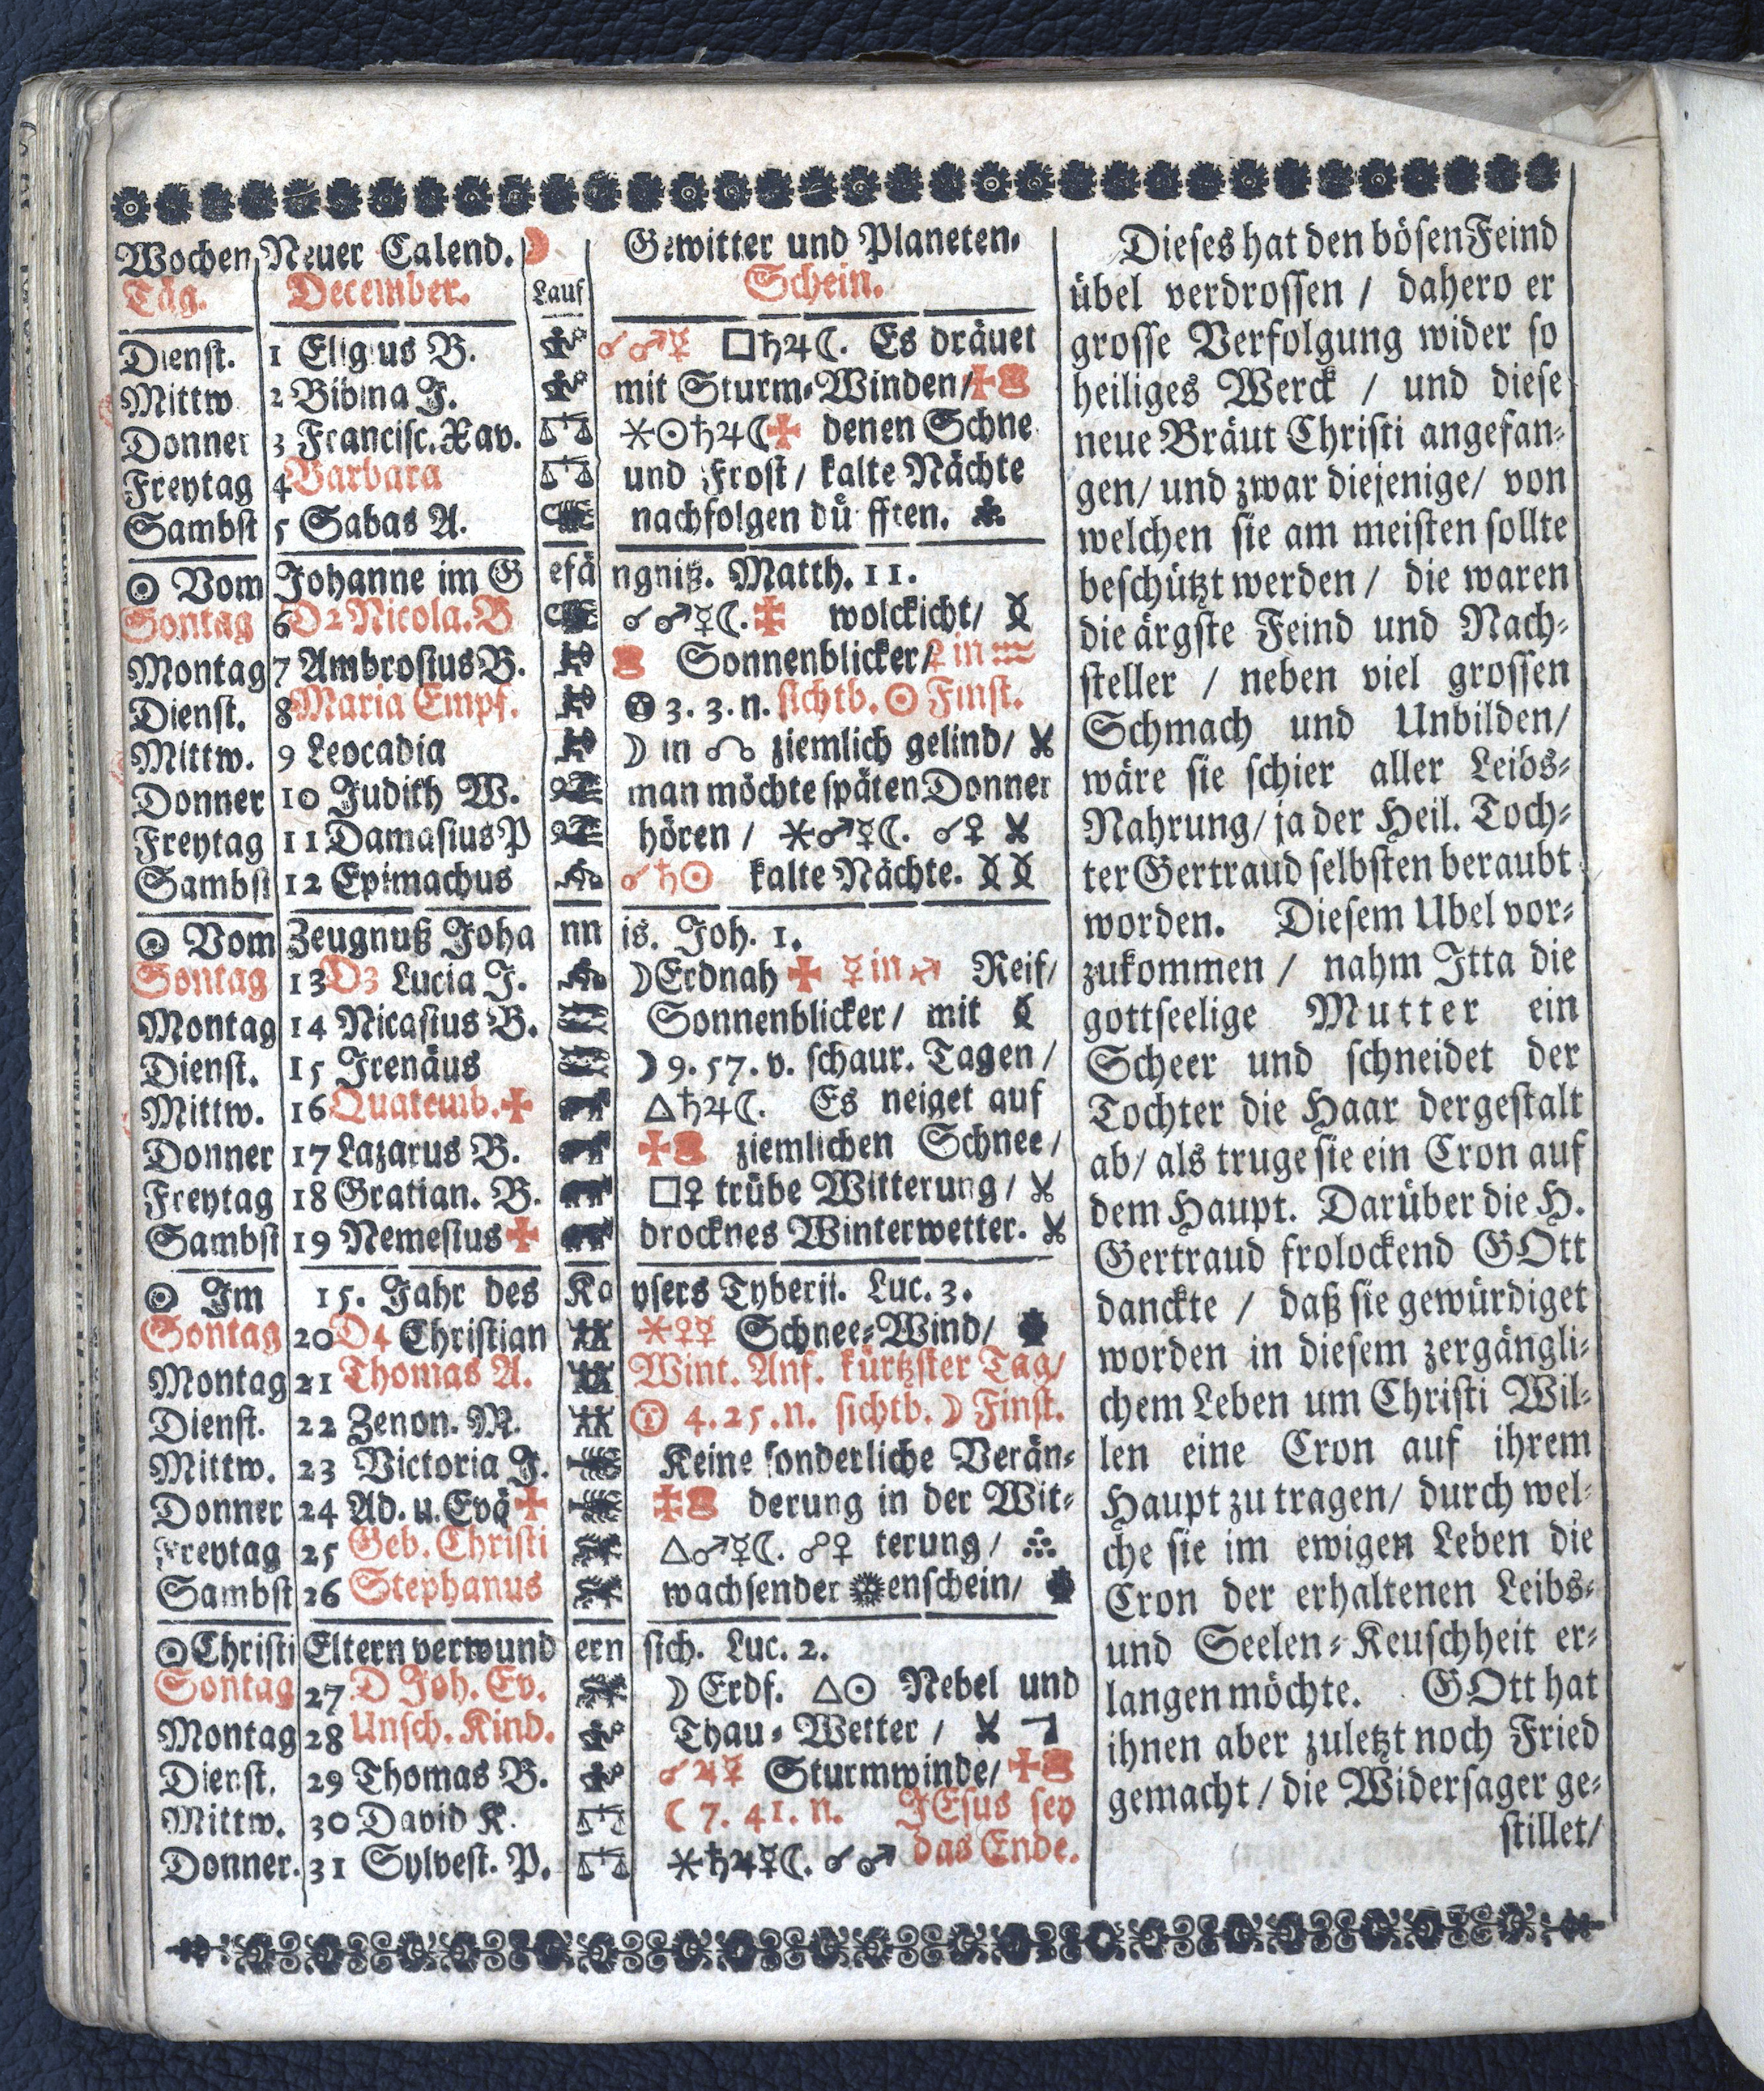 Wochen Neuer Calend. ☽ Gewitter und Planeten-
Täg. December. Lauf Schein.
Dienst. 1 Eligius B. ☌♂☿ □♄♃☾. Es dräuet
Mittw 2 Bibina J. mit Sturm-Winden/
Donner 3 Francisc. Xav. ⚹☉♄♃☾ denen Schne
Freytag 4 Barbara und Frost/ kalte Nächte
Sambst 5 Sabas A. nachfolgen düfften.
☉ Vom Johanne im Gefängniß. Matth. 11.
Sontag 6 D2 Nicola. B ☌♂☿☾. wolckicht/
Montag 7 Ambrosius B. Sonnenblicker/ ♀ in ♒
Dienst. 8 Maria Empf. 3. 3. n. sichtb. ☉ Finst.
Mittw. 9 Leocadia ☽ in ☊ ziemlich gelind/
Donner 10 Judith W. man möchte späten Donner
Freytag 11 Damasius P hören / ⚹♂☿☾. ☌♀
Sambst 12 Epimachus ☌♄☉ kalte Nächte.
☉ Vom Zeugnuß Johannis. Joh. 1.
Sontag 13 D3 Lucia J. ☽ Erdnah ☿ in ♐ Reif/
Montag 14 Nicasius B. Sonnenblicker/ mit
Dienst. 15 Irenäus ☽ 9. 57. v. schaur. Tagen/
Mittw. 16 Quatemb. △♄♃☾. Es neiget auf
Donner 17 Lazarus B. ziemlichen Schnee/
Freytag 18 Gratian. B. □♀ trübe Witterung/
Sambst 19 Nemesius drocknes Winterwetter.
☉ Im 15. Jahr des Kaysers Tyberii. Luc. 3.
Sontag 20 D4 Christian ⚹♀☿ Schnee-Wind/
Montag 21 Thomas A. Wint. Anf. kürtzster Tag/
Dienst. 22 Zenon. M. 4. 25. n. sichtb. ☽ Finst.
Mittw. 23 Victoria J. Keine sonderliche Verän-
Donner 24 Ad. u. Evä derung in der Wit-
Freytag 25 Geb. Christi △♂☿☾. ☍♀ terung/
Sambst 26 Stephanus wachsender enschein/
☉ Christi Eltern verwundern sich. Luc. 2.
Sontag 27 D Joh. Ev. ☽ Erdf. △☉ Nebel und
Montag 28 Unsch. Kind. Thau-Wetter /
Dienst. 29 Thomas B. ☌♃☿ Sturmwinde/
Mittw. 30 David K. ☾ 7. 41. n. JEsus sey
Donner. 31 Sylvest. P. ⚹♄♃☿☾. ☌♂ das Ende.
Dieses hat den bösen Feind
übel verdrossen / dahero er
grosse Verfolgung wider so
heiliges Werck / und diese
neue Bräut Christi angefan-
gen/ und zwar diejenige/ von
welchen sie am meisten sollte
beschützt werden / die waren
die ärgste Feind und Nach-
steller / neben viel grossen
Schmach und Unbilden/
wäre sie schier aller Leibs-
Nahrung/ ja der Heil. Toch-
ter Gertraud selbsten beraubt
worden. Diesem Ubel vor-
zukommen / nahm Itta die
gottseelige Mutter ein
Scheer und schneidet der
Tochter die Haar dergestalt
ab/ als truge sie ein Cron auf
dem Haupt. Darüber die H.
Gertraud frolockend GOtt
danckte / daß sie gewürdiget
worden in diesem zergängli-
chem Leben um Christi Wil-
len eine Cron auf ihrem
Haupt zu tragen/ durch wel-
che sie im ewigen Leben die
Cron der erhaltenen Leibs-
und Seelen-Keuschheit er-
langen möchte. GOtt hat
ihnen aber zuletzt noch Fried
gemacht/ die Widersager ge-
stillet/